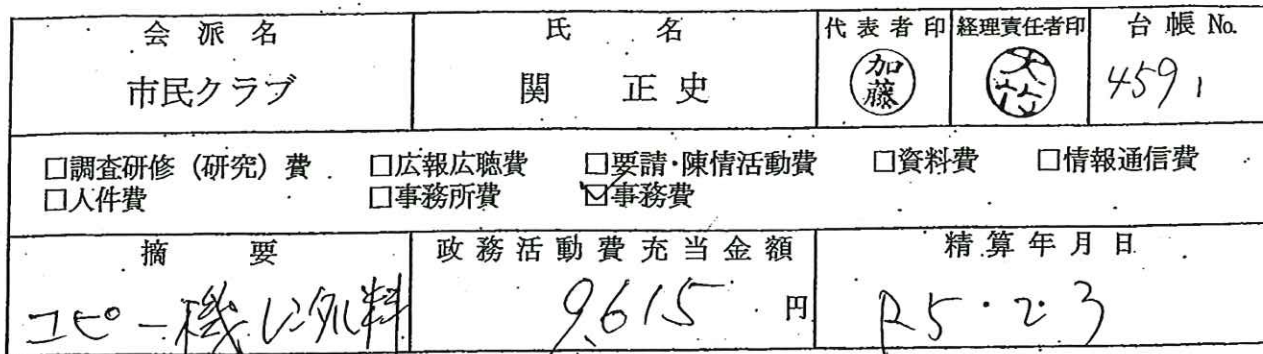 会派名 氏名 代表者印 経理責任者印 台帳No.
市民クラブ 関 正史 加藤 4591
□調査研修(研究)費 □広報広聴費 □要請・陳情活動費 □資料費 □情報通信費
□人件費 □事務所費 ☑事務費
摘要 政務活動費充当金額 精算年月日
コピー機レンタル料 9,615円 R5・2・3